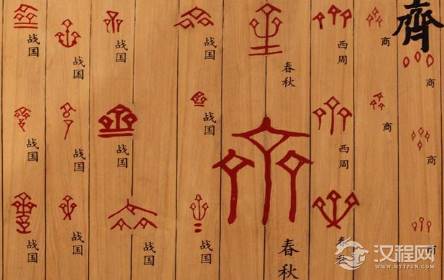 齊
商
商
商
商
商
西周
西周
春秋
春秋
战国
战国
战国
战国
战国
战国
战国
战国
战国
战国
战国
战国
汉程网
HTTPCN.COM